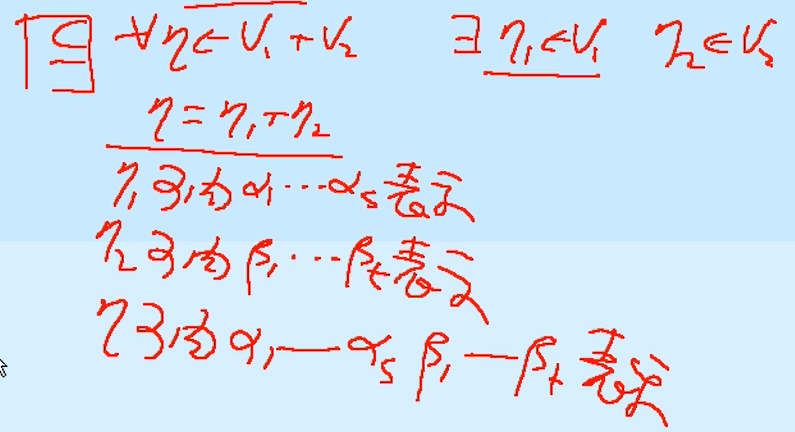 ⊆ ∀η∈V₁+V₂ ∃ η₁∈V₁ η₂∈V₂
η=η₁+η₂
η₁可由α₁…αₛ表示
η₂可由β₁…βₜ表示
η可由α₁—αₛ β₁—βₜ表示